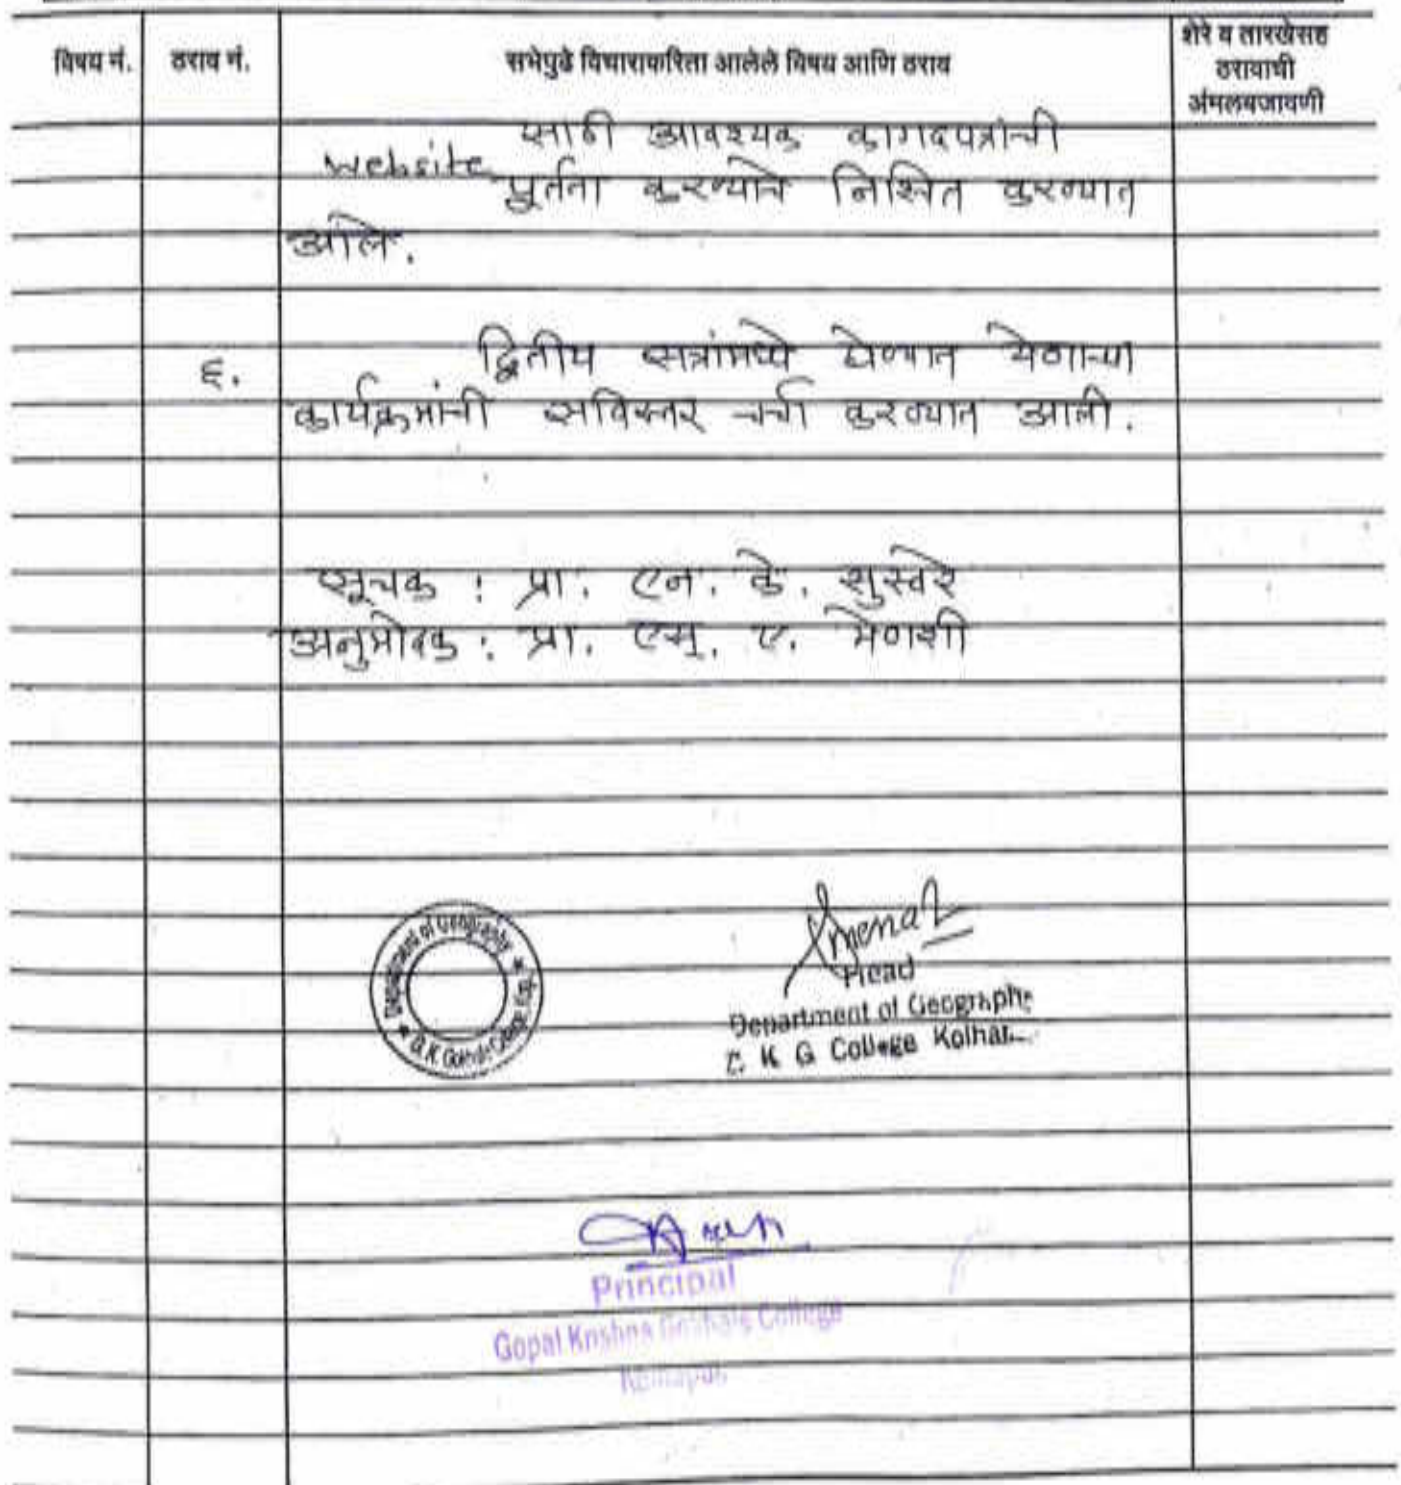 विषय नं.
ठराव नं.
सभेपुढे विचाराकरिता आलेले विषय आणि ठराव
शेरे व तारखेसह
ठरावाची
अंमलबजावणी
website साठी आवश्यक कागदपत्रांची
पूर्तता करण्याचे निश्चित करण्यात
आले.
६. द्वितीय सत्रांमध्ये घेण्यात येणाऱ्या
कार्यक्रमांची सविस्तर चर्चा करण्यात आली.
सूचक : प्रा. एन. के.
अनुमोदक : प्रा. एस. ए. मेणशी
Department of Geography
G. K. Gokhale College Kop.
Head
Department of Geography
G K G College
Principal
Gopal Krishna Gokhale College
Kolhapur